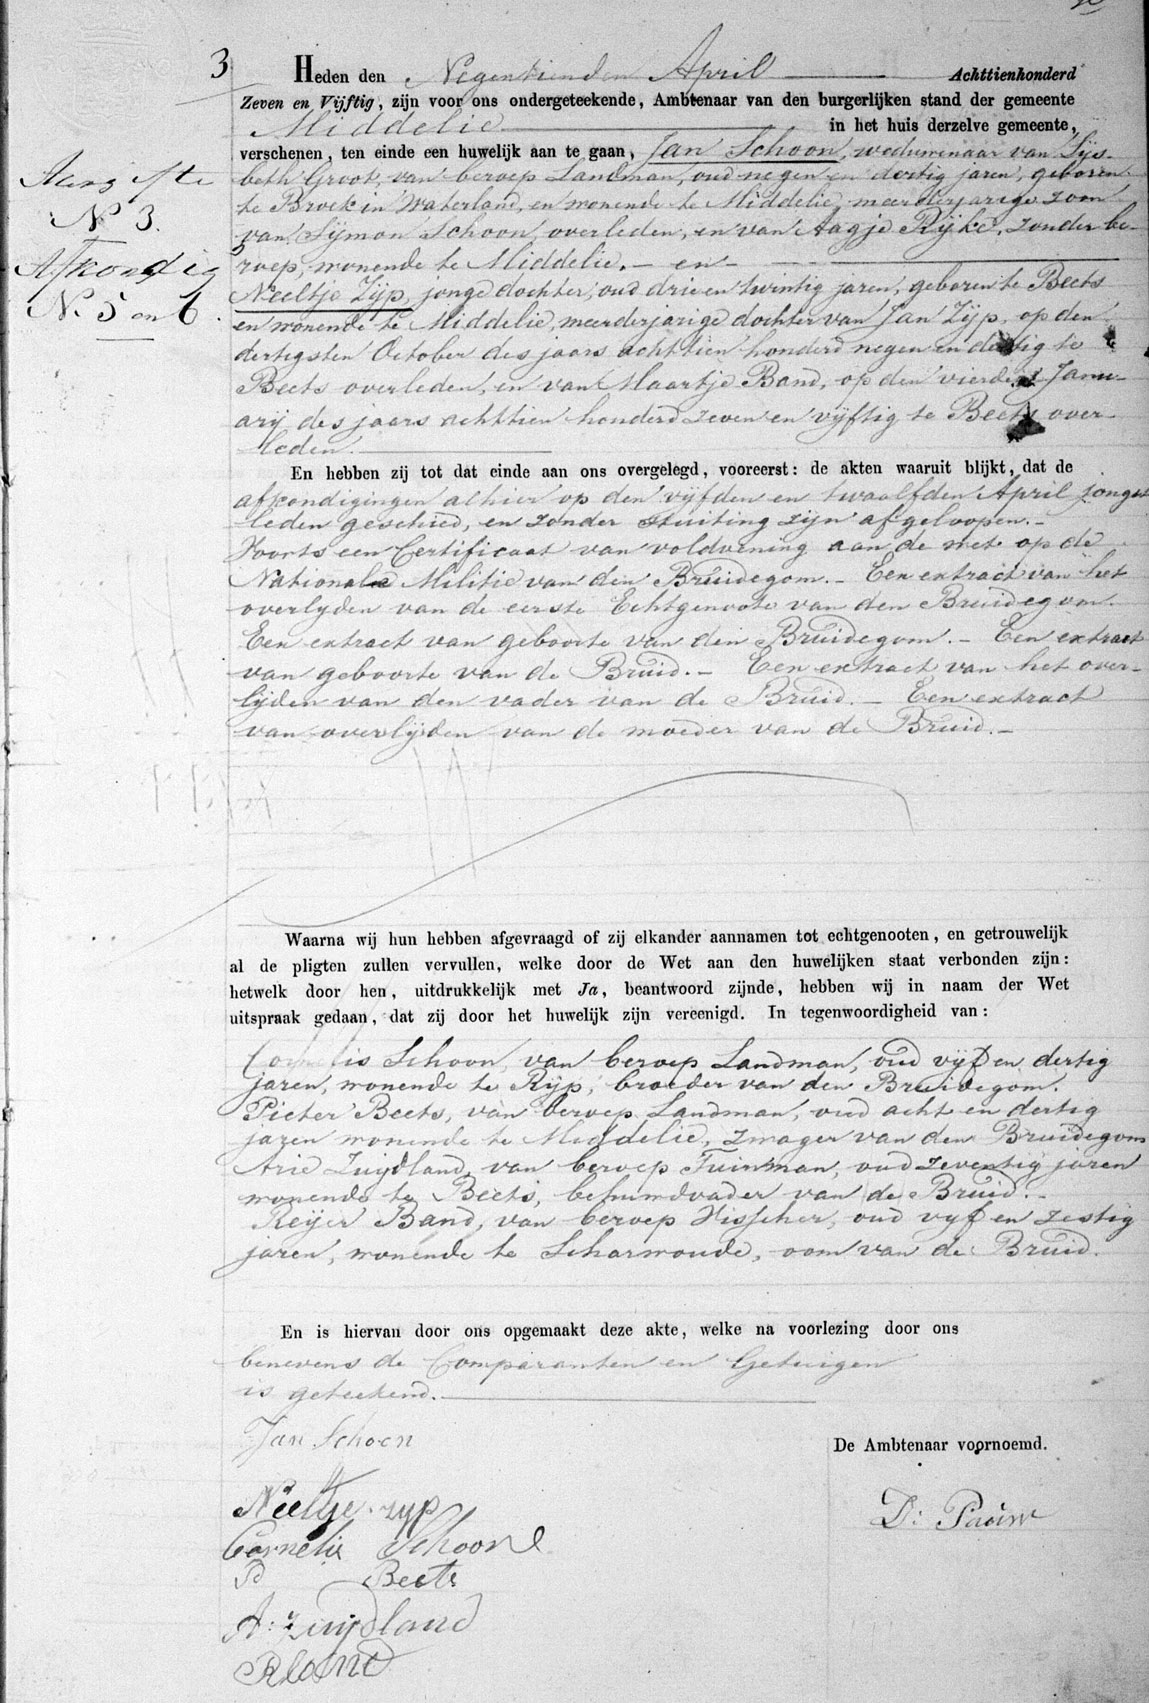 3
Heden den Negentienden April Achttienhonderd
Zeven en Vijftig, zijn voor ons ondergeteekende, Ambtenaar van den burgerlijken stand der gemeente
Middelie in het huis derzelve gemeente,
verschenen, ten einde een huwelijk aan te gaan, Jan Schoon, weduwenaar van Lijs-
beth Groot, van beroep Landman, oud negen en dertig jaren, geboren
te Broek in Waterland, en wonende te Middelie, meerderjarige zoon
van Sijmon Schoon, overleden, en van Aagje Rijke, zonder be-
roep, wonende te Middelie. – en –
Neeltje Zijp, jonge dochter, oud drie en twintig jaren, geboren te Beets
en wonende te Middelie, meerderjarige dochter van Jan Zijp, op den
dertigsten October des jaars achttien honderd negen en dertig te
Beets overleden, en van Maartje Band, op den vierden Janu-
arij des jaars achttien honderd zeven en vijftig te Beets over-
leden.
Aangifte
N 3.
Afkondig
N. 5 en 6.
En hebben zij tot dat einde aan ons overgelegd, vooreerst: de akten waaruit blijkt, dat de
afkondigingen alhier op den vijfden en twaalfden April jongst
leden geschied, en zonder stuiting zijn afgeloopen. –
Voorts een Certificaat van voldoening aan de wet op de
Nationale Militie van den Bruidegom. – Een extract van het
overlijden van de eerste Echtgenoote van den Bruidegom.
Een extract van geboorte van den Bruidegom. – Een extract
van geboorte van de Bruid. – Een extract van het over-
lijden van den vader van de Bruid. – Een extract
van overlijden van de moeder van de Bruid. –
Waarna wij hun hebben afgevraagd of zij elkander aannamen tot echtgenooten, en getrouwelijk
al de pligten zullen vervullen, welke door de Wet aan den huwelijken staat verbonden zijn:
hetwelk door hen, uitdrukkelijk met Ja, beantwoord zijnde, hebben wij in naam der Wet
uitspraak gedaan, dat zij door het huwelijk zijn vereenigd. In tegenwoordigheid van:
Cornelis Schoon, van beroep Landman, oud vijf en dertig
jaren, wonende te Rijp, broeder van den Bruidegom.
Pieter Beets, van beroep Landman, oud acht en dertig
jaren wonende te Middelie, zwager van den Bruidegom
Arie Zuijdland, van beroep Tuinman, oud zeventig jaren
wonende te Beets, behuwdvader van de Bruid. –
Reijer Band, van beroep Visscher, oud vijf en zestig
jaren, wonende te Scharwoude, oom van de Bruid.
En is hiervan door ons opgemaakt deze akte, welke na voorlezing door ons
benevens de Comparanten en Getuigen
is geteekend.
Jan Schoon
De Ambtenaar voornoemd.
Neeltje zijp
D: Pauw
Cornelis Schoon
P Beets
A: zuijdland
R band